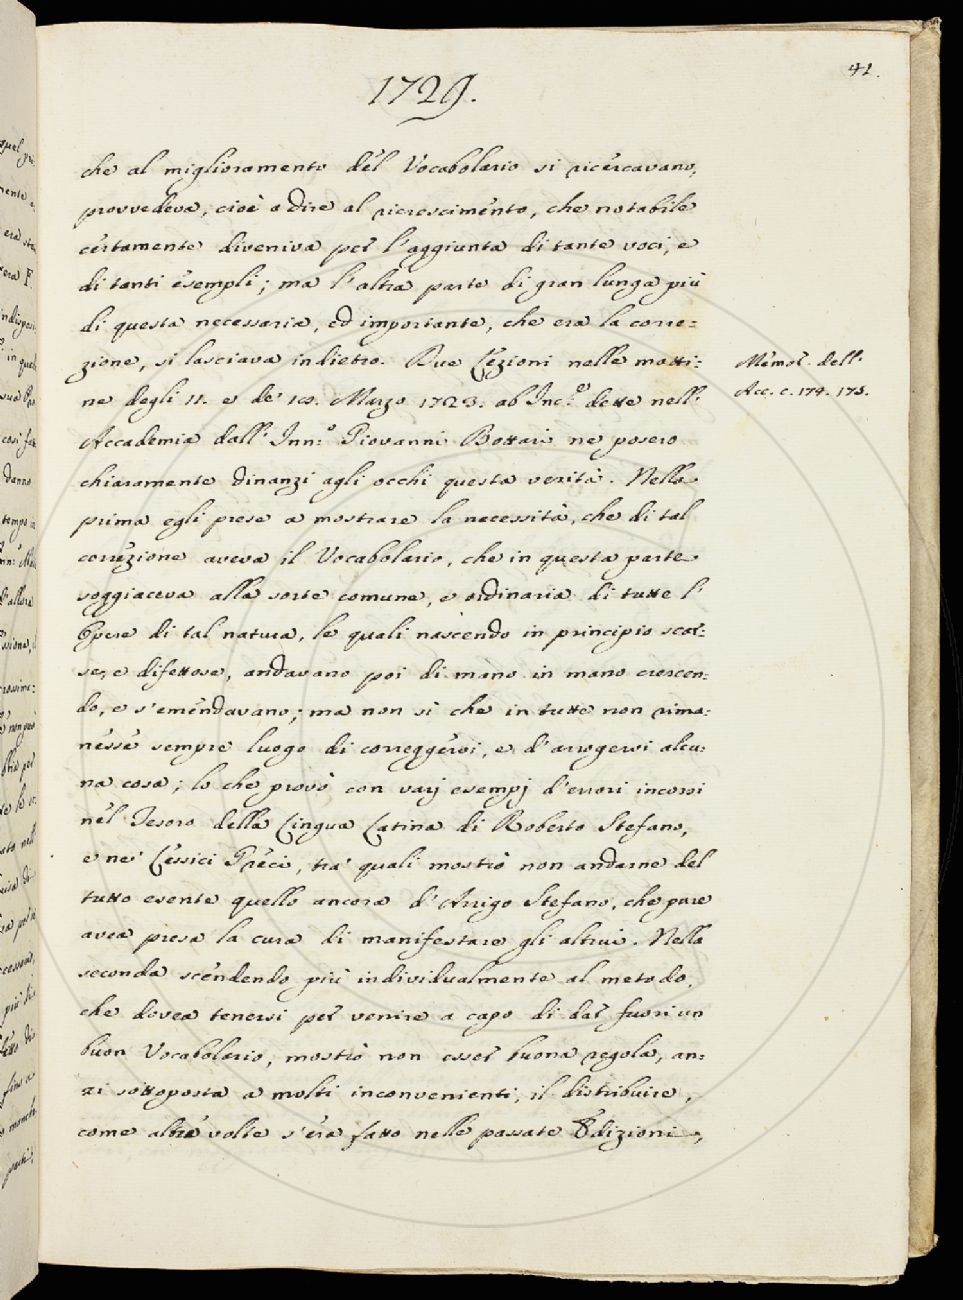 41.
1729.
che al miglioramento del Vocabolario si ricercavano,
provvedeva, cioè a dire al ricrescimento, che notabile
certamente diveniva per l'aggiunta di tante voci, e
di tanti esempli; ma l'altra parte di gran lunga più
di questa necessaria, ed importante, che era la corre=
zione, si lasciava indietro. Due Lezioni nelle matti=
ne degli 11. e de' 18. Marzo 1723. ab Inc.e dette nell'
Accademia dall' Inn.o Giovanni Bottari ne posero
chiaramente dinanzi agli occhi questa verità. Nella
prima egli prese a mostrare la necessità, che di tal
correzione aveva il Vocabolario, che in questa parte
soggiaceva alla sorte comune, e ordinaria di tutte l'
Opere di tal natura, le quali nascendo in principio scar=
se, e difettose, andavano poi di mano in mano crescen=
do, e s'emendavano; ma non sì che in tutte non rima=
nesse sempre luogo di correggersi, e d'arrogersi alcu=
na cosa; lo che provò con varj esempj d'errori incorsi
nel Tesoro della Lingua Latina di Roberto Stefano,
e ne' Lessici Greci, tra' quali mostrò non andarne del
tutto esente quello ancora d'Arrigo Stefano, che pure
avea presa la cura di manifestare gli altrui. Nella
seconda scendendo più individualmente al metodo,
che dovea tenersi per venire a capo di dar fuori un
buon Vocabolario, mostrò non esser buona regola, an=
zi sottoposta a molti inconvenienti, il distribuire,
come altre volte s'era fatto nelle passate Edizioni,
Memor. dell'
Acc. c. 174. 175.